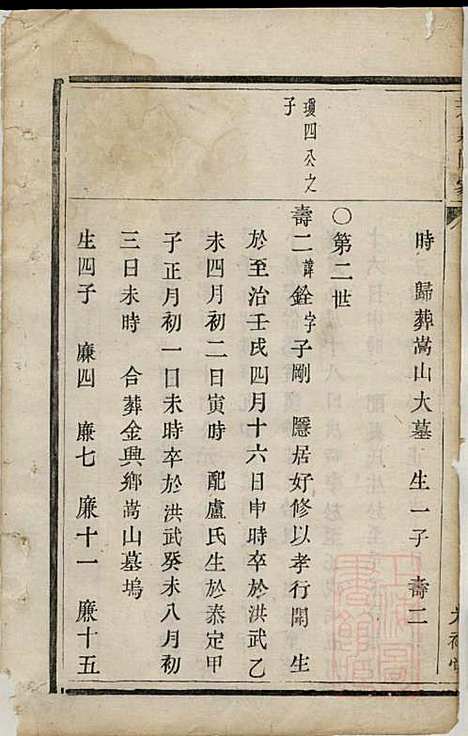 時 歸葬嵩山大墓 生一子 壽二
〇第二世
瓊四公之
子
壽二諱銓字子剛 隱居好修以孝行聞 生
於至治壬戌四月十六日申時卒於洪武乙
未四月初二日寅時 配盧氏生於泰定甲
子正月初一日未時卒於洪武癸未八月初
三日未時 合葬金興鄉嵩山墓塢
生四子 廉四 廉七 廉十一 廉十五